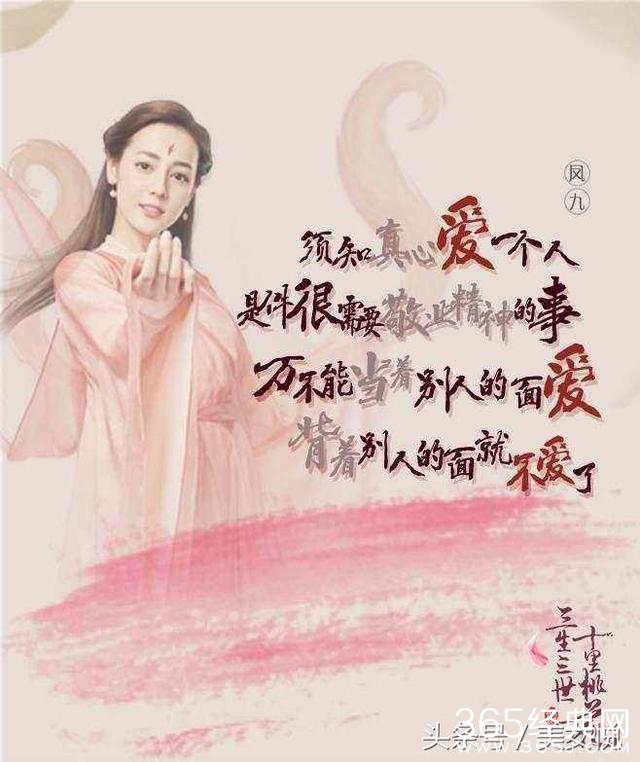 凤九
须知真心爱一个人
是件很需要敬业精神的事
万不能当着别人的面爱
背着别人的面就不爱了
三生三世
十里桃花
365经典网
头条号 /